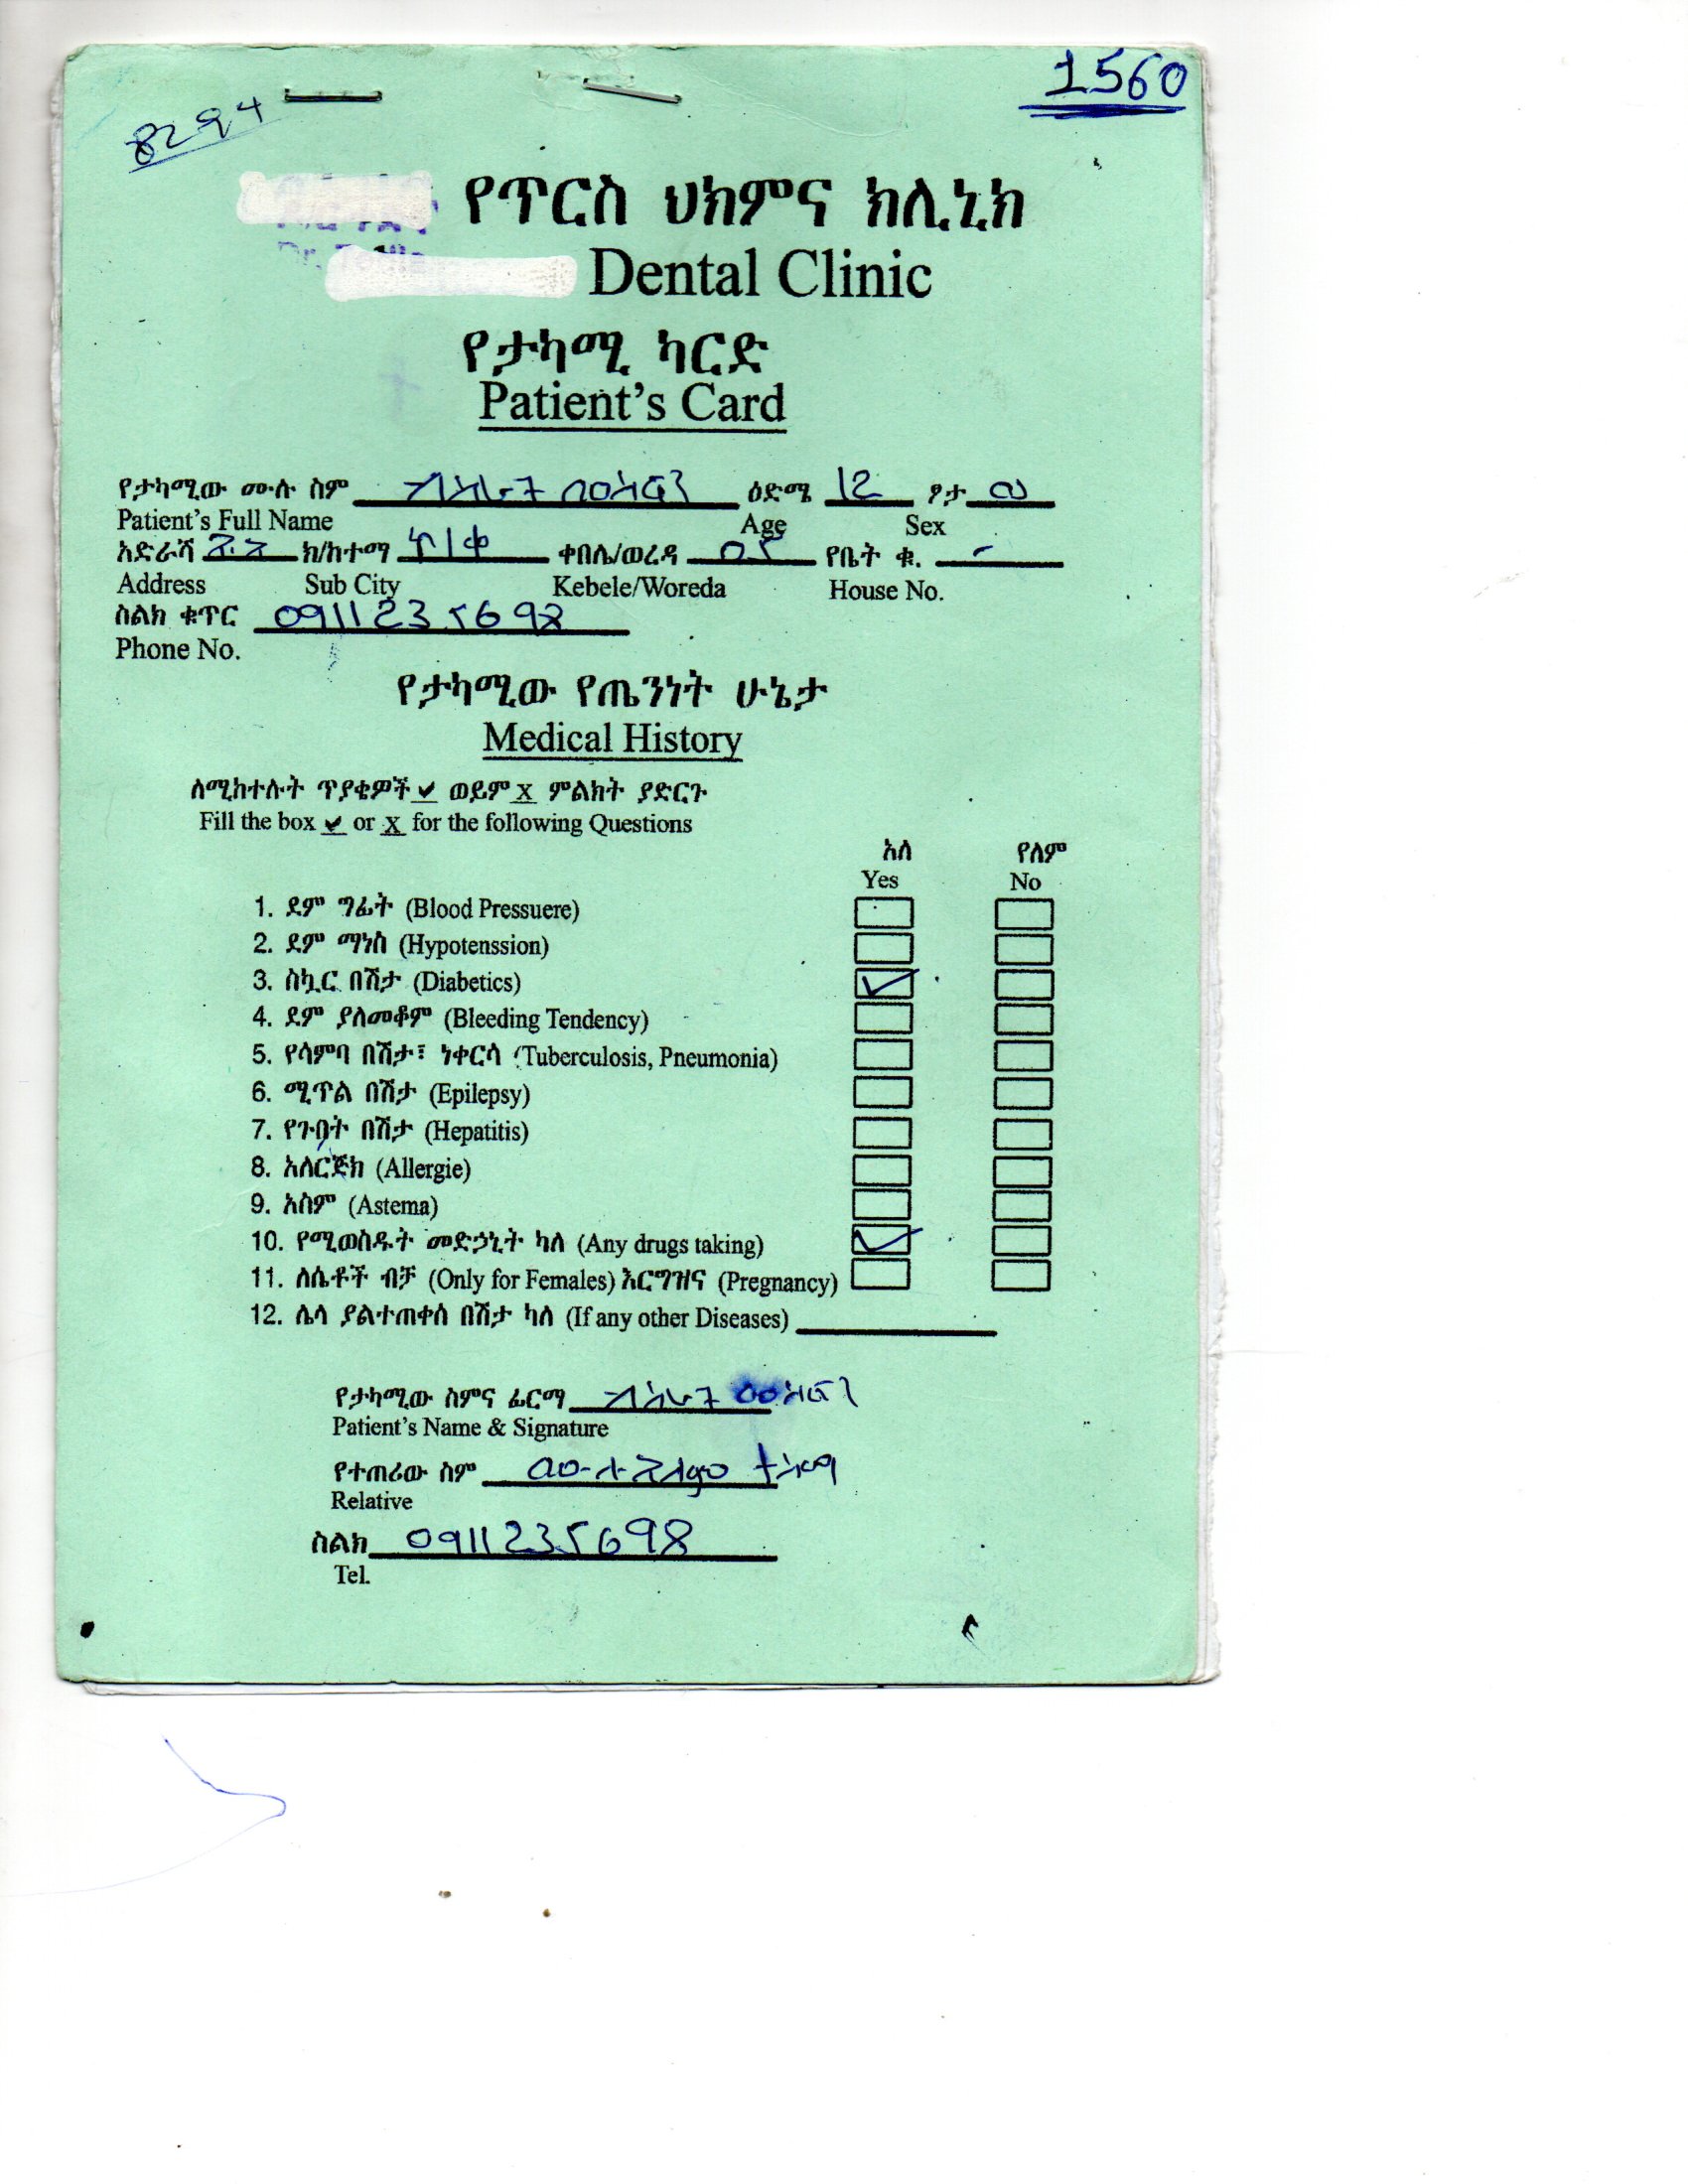 1560
8294
የጥርስ ህክምና ክሊኒክ
Dental Clinic
የታካሚ ካርድ
Patient's Card
የታካሚው ሙሉ ስም ብስራት መስፍን ዕድሜ 12 ፆታ ወ
Patient's Full Name Age Sex
አድራሻ አ.አ ክ/ከተማ ቀበሌ/ወረዳ 05 የቤት ቁ. -
Address Sub City Kebele/Woreda House No.
ስልክ ቁጥር 0911235698
Phone No.
የታካሚው የጤንነት ሁኔታ
Medical History
ለሚከተሉት ጥያቄዎች ✔ ወይም X ምልክት ያድርጉ
Fill the box ✔ or X for the following Questions
አለ የለም
Yes No
1. ደም ግፊት (Blood Pressuere)
2. ደም ማነስ (Hypotenssion)
3. ስኳር በሽታ (Diabetics) ✓
4. ደም ያለመቆም (Bleeding Tendency)
5. የሳምባ በሽታ፣ ነቀርሳ (Tuberculosis, Pneumonia)
6. ሚጥል በሽታ (Epilepsy)
7. የጉበት በሽታ (Hepatitis)
8. አለርጅክ (Allergie)
9. አስም (Astema)
10. የሚወስዱት መድኃኒት ካለ (Any drugs taking) ✓
11. ለሴቶች ብቻ (Only for Females) እርግዝና (Pregnancy)
12. ሌላ ያልተጠቀሰ በሽታ ካለ (If any other Diseases)
የታካሚው ስምና ፊርማ ብስራት መስፍን
Patient's Name & Signature
የተጠሪው ስም
Relative
ስልክ 0911235698
Tel.